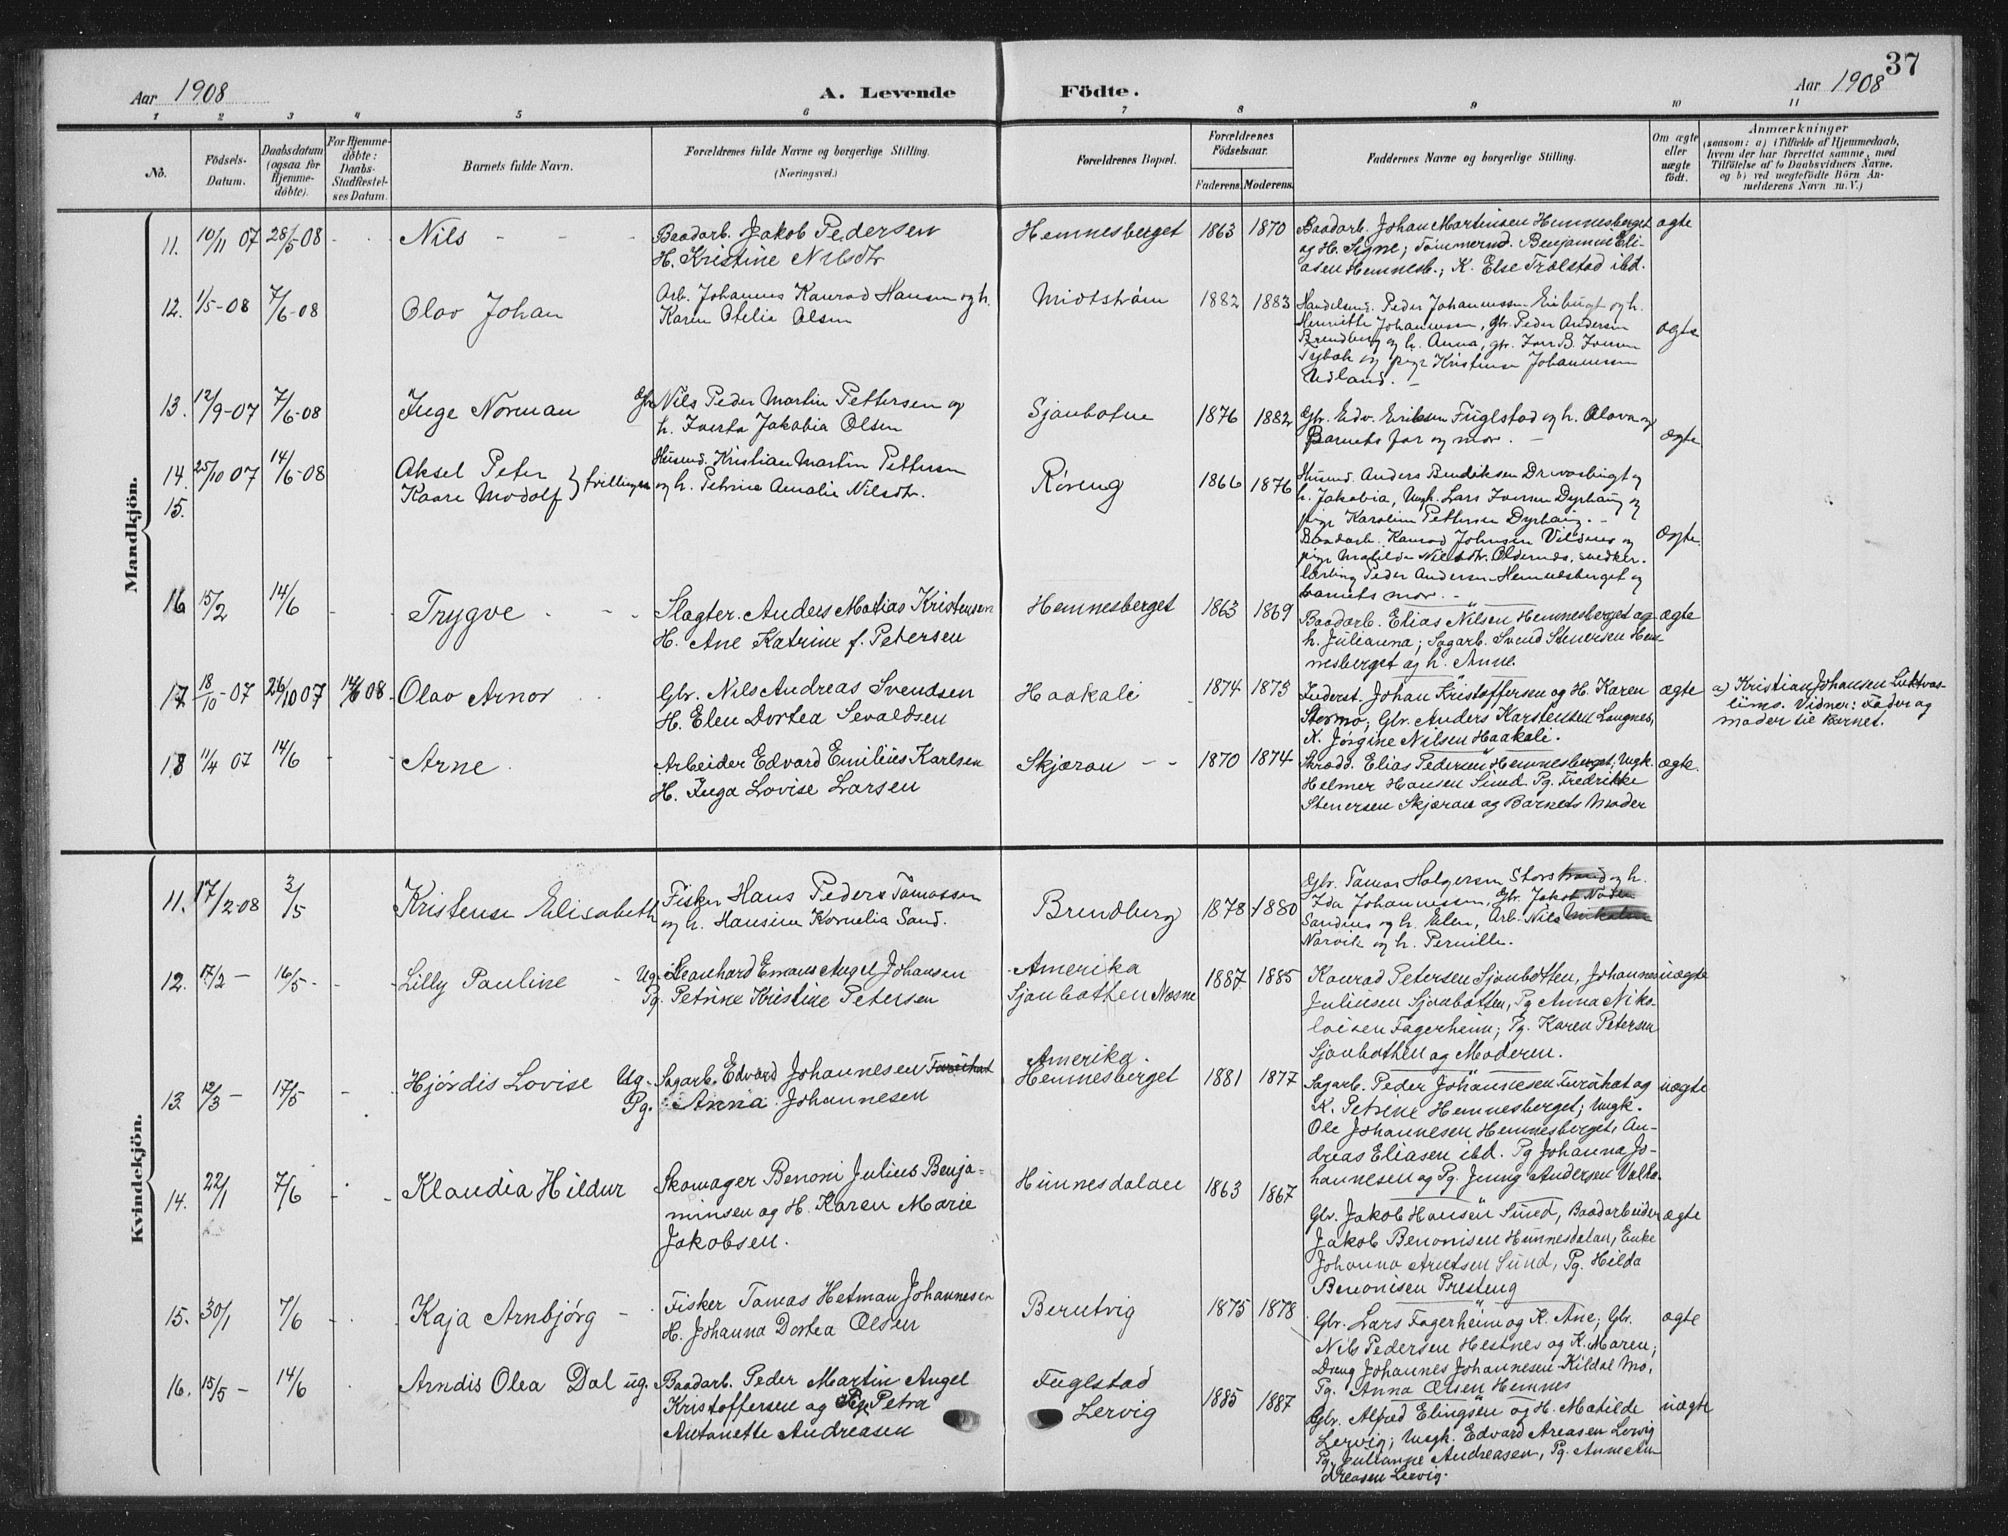 37
Aar 1908
A. Levende Födte.
Aar 1908
1 2 3 4 5 6 7 8 9 10 11
No.
Födsels-Datum.
Daabsdatum (ogsaa for Hjemme-döbte).
For Hjemme-döbte: Daabs-Stadfæstelses Datum.
Barnets fulde Navn.
Forældrenes fulde Navne og borgerlige Stilling.
(Næringsvei.)
Forældrenes Bopæl.
Forældrenes Födselsaar.
Faderens. Moderens.
Faddernes Navne og borgerlige Stilling.
Om ægte eller uægte födt.
Anmærkninger
(saasom: a) i Tilfælde af Hjemmedaab,
hvem der har forrettet samme, med
Tilföielse af to Daabsvidners Navne.
og b) ved uegtefödte Börn An-
melderens Navn m.V.)
Mandkjön.
11. 10/11 07 28/5-08 Nils
Baadarb. Jakob Pedersen
H. Kristine Nilsdtr
Hemnesberget 1863 1870
Baadarb. Johan Martinsen Hemnesberget
og H. Signe; Tömmermd. Benjamin Eli-
asen Hemnesb.; K. Else Trælstad ibd.
ægte
12. 1/5-08 7/6-08 Olav Johan
Arb. Johannes Konrad Hansen og h.
Karen Otelie Olsen
Midtstrøm 1882 1883
Handelsmd. Peder Johannessen Eibugt og h.
Henriette Johannessen, gbr. Peder Andersen
Brendberg og h. Anna, gbr. Iver B. Iversen
og pige Kristine Johannessen
Udland.
ægte
13. 12/9-07 7/6-08 Inge Norman
Gbr Nils Peder Martin Pettersen og
h. Iverta Jakobia Olsen
Sjonbotne 1876 1882
Gbr. Edv. Eriksen Fuglstad og h. Olava og
Barnets far og mor.
ægte
14. 25/10 07 14/6-08 Aksel Peter
15. Kaare Modolf } tvillinger
Husmd. Kristian Martin Pettersen
og h. Petrine Amalie Nilsdtr.
Röreng 1866 1876
Husmd. Anders Bendiksen Drevasbugt og
h. Jakobia, Ungk. Lars Iversen Dyrhaug og
pige Karoline Pettersen Dyrhaug.
Baadarb. Konrad Johnsen Vilsnes og
pige Matilde Nilsdtr. Oldernes, snedker-
lærling Peder Andersen Hemnesberget og
barnets mor.
ægte.
16 15/2 14/6 Trygve
Slagter. Anders Matias Kristensen
H. Ane Katrine f. Petersen
Hemnesberget 1863 1869
Baadarb. Elias Nilsen Hemnesberget og
h. Julianna; Sagarb. Svend Stenersen Hem-
nesberget og h. Anne.
ægte
17. 18/10-07 26/10 07 14/6 08 Olav Arnor
Gbr. Nils Andreas Svendsen
H. Elen Dortea Sevaldsen
Haakali 1874 1873
Inderst. Johan Kristoffersen og H. Karen
Stormo; Gbr. Anders Karstensen Langnes,
K. Jörgine Nilsen Haakali.
ægte
a) Kristian Johansen Luktvas-
lims. Vidner: Fader og
moder til barnet.
18 11/4 07 14/6 Arne
Arbeider Edvard Emilius Karlsen
H. Inga Lovise Larsen
Skjæran 1870 1874
Skrædd. Elias Pedersen Hemnesberget, Ungk.
Helmer Hansen Sund. Pg. Fredrikke
Stenersen Skjæran og Barnets Moder
ægte.
Kvindekjön.
11. 17/2-08 3/5 Kristense Elisabeth
Fisker Hans Peder Tomassen
og h. Hansine Kornelia Sand.
Brendberg 1878 1880
Gbr. Tomas Holgersen Storstrand og h.
Ida Johannessen, Gbr. Jakob
Sandnes og h. Elen, Arb. Nils
Narvik og h. Pernille.
12. 17/2 – 16/5 Lilly Pauline
Ug. Leonhard Emans Angel Johansen
Pg. Petrine Kristine Petersen
Amerika
Sjonbotten Nesne 1887 1885
Konrad Petersen Sjonbotten, Johannes
Juliusen Sjonbotten, Pg Anna Niko-
laisen Fagerheim; Pg. Karen Petersen
Sjonbotten og Moderen.
uægte
13 12/3 – 17/5 Hjördis Lovise
Ug. Sagarb. Edvard Johannesen Furuhat
Pg. Anna Johannesen
Amerika.
Hemnesberget 1881 1877
Sagarb. Peder Johannesen Furuhat og
K. Petrine Hemnesberget; Ungk.
Ole Johannesen Hemnesberget, An-
dreas Eliasen ibd. Pg Johanna Jo-
hannesen og Pg. Jenny Andersen Valla.
uægte
14. 22/1 7/6 Klaudia Hildur
Skomager Benoni Julius Benja-
minsen og H. Karen Marie
Jakobsen.
Hemnesdalen 1863 1867
Gbr. Jakob Hansen Sund, Baadarbeider
Jakob Benonisen Hemnesdalen, Enke
Johanna Arntsen Sund, Pg. Hilda
Benonisen Presteng
ægte
15. 30/1 7/6 Kaja Arnbjörg
Fisker Tomas Hetman Johannesen
H. Johanna Dortea Olsen
Berntvig 1875 1878
Gbr. Lars Fagerheim og K. Ane; Gbr.
Nils Pedersen Hestnes og K. Maren;
Dreng Johannes Johannesen Kildal Mo,
Pg. Anna Olsen Hemnes
ægte
16. 15/5 – 14/6 Arndis Olea Dal
ug. Baadarb. Peder Martin Angel
Kristoffersen og Pg. Petra
Antonette Andreasen
Fuglstad
Lervig 1885 1887
Gbr. Alfred Elingsen og H. Matilde
Lervig; Ungk. Edvard Areasen Lervig
Pg. Julianne Andreasen, Pg. Anne An-
dreasen Lervig.
uægte